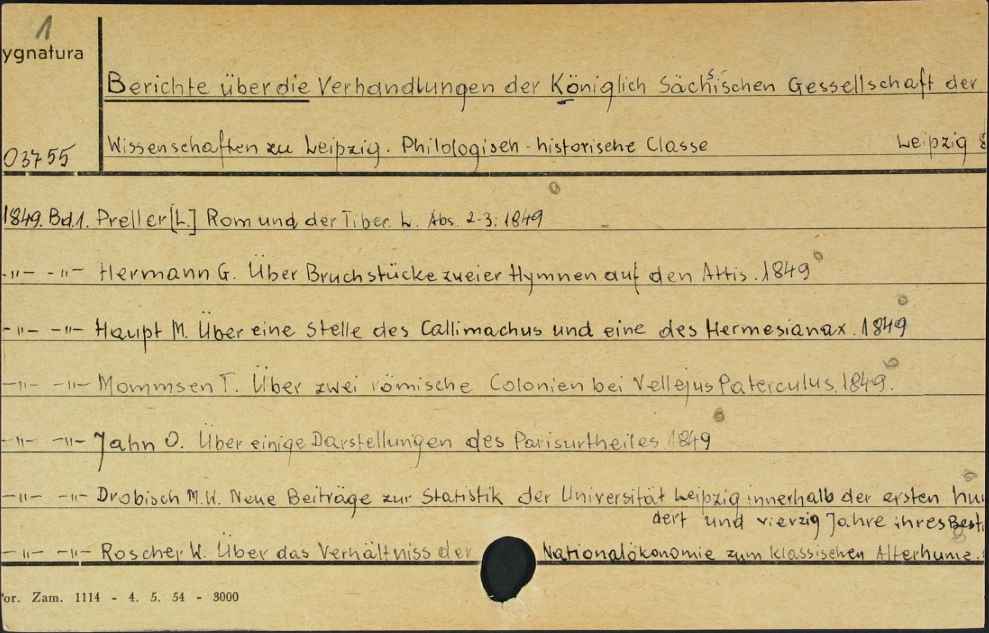 1
ygnatura
Berichte über die Verhandlungen der Königlich Sächsischen Gessellschaft der
03755 Wissenschaften zu Leipzig. Philologisch-historische Classe Leipzig 8
1849. Bd.1. Preller [L.] Rom und der Tiber. L. Abs. 2-3. 1849
-"- -"- Hermann G. Über Bruchstücke zweier Hymnen auf den Attis. 1849
-"- -"- Haupt M. Über eine Stelle des Callimachus und eine des Hermesianax. 1849
-"- -"- Mommsen T. Über zwei römische Colonien bei Vellejus Paterculus. 1849.
-"- -"- Jahn O. Über einige Darstellungen des Parisurtheiles 1849
-"- -"- Drobisch M.W. Neue Beiträge zur Statistik der Universität Leipzig innerhalb der ersten hun
dert und vierzig Jahre ihres Best
-"- -"- Roscher W. Über das Verhältniss der Nationalökonomie zum klassischen Alterhume.
or. Zam. 1114 - 4. 5. 54 - 3000